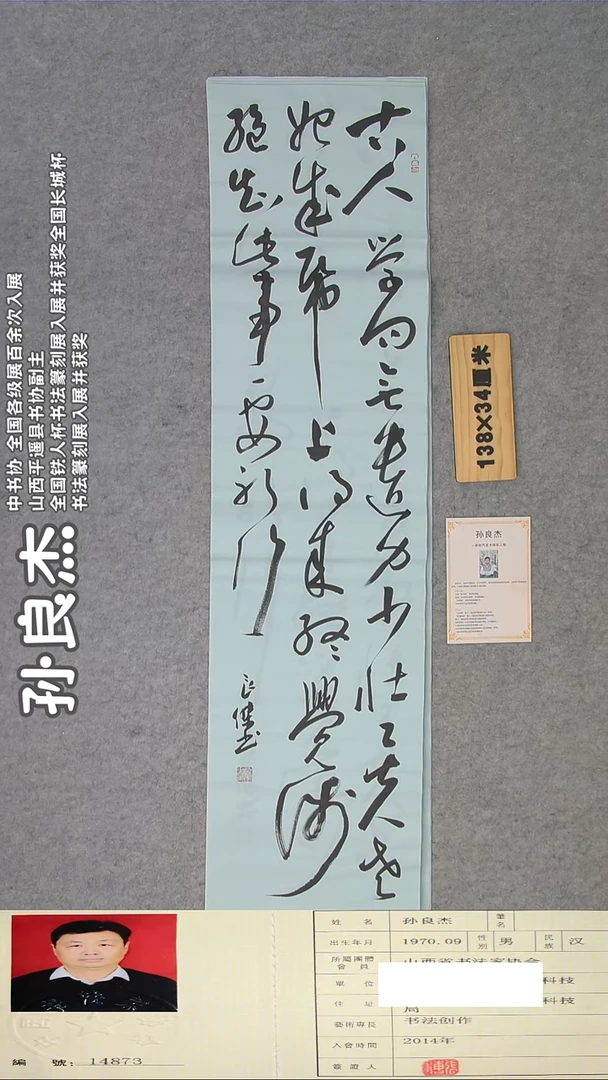 古人学问无遗力少壮工夫老
始成纸上得来终觉浅
绝知此事要躬行
良杰书
中书协 全国各级展百余次入展
山西平遥县书协副主
全国铁人杯书法篆刻展入展并获奖全国长城杯
书法篆刻展入展并获奖
孙良杰
138×34厘米
孙良杰
姓 名 孙良杰 筆名
出生年月 1970.09 性别 男 民族 汉
所屬團體會員 山西省书法家协会
單 位 科技
住 址 科技局
藝術專長 书法创作
入會時間 2014年
簽證人
編 號: 14873